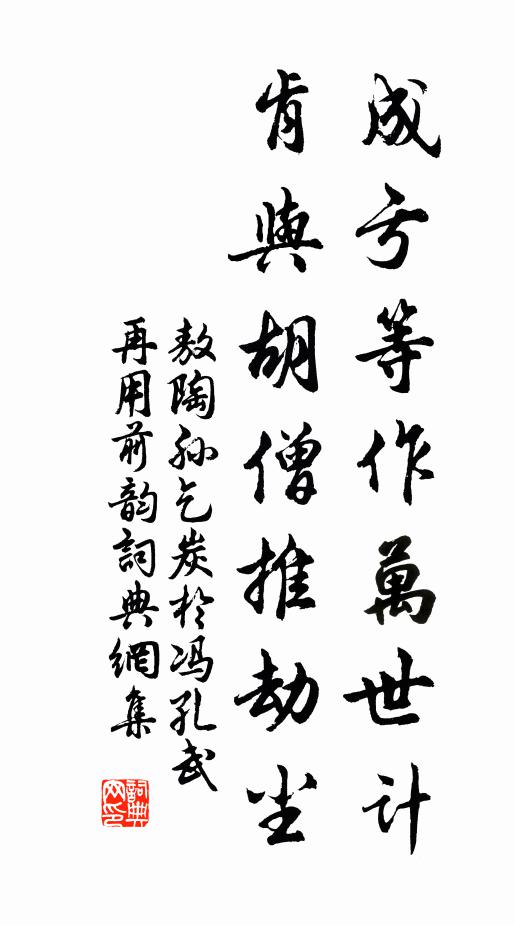 成亏等作萬世计
肯與胡僧推劫尘
敖陶孙乞炭於冯孔武
再用前韵詞典網集
詞典
网印